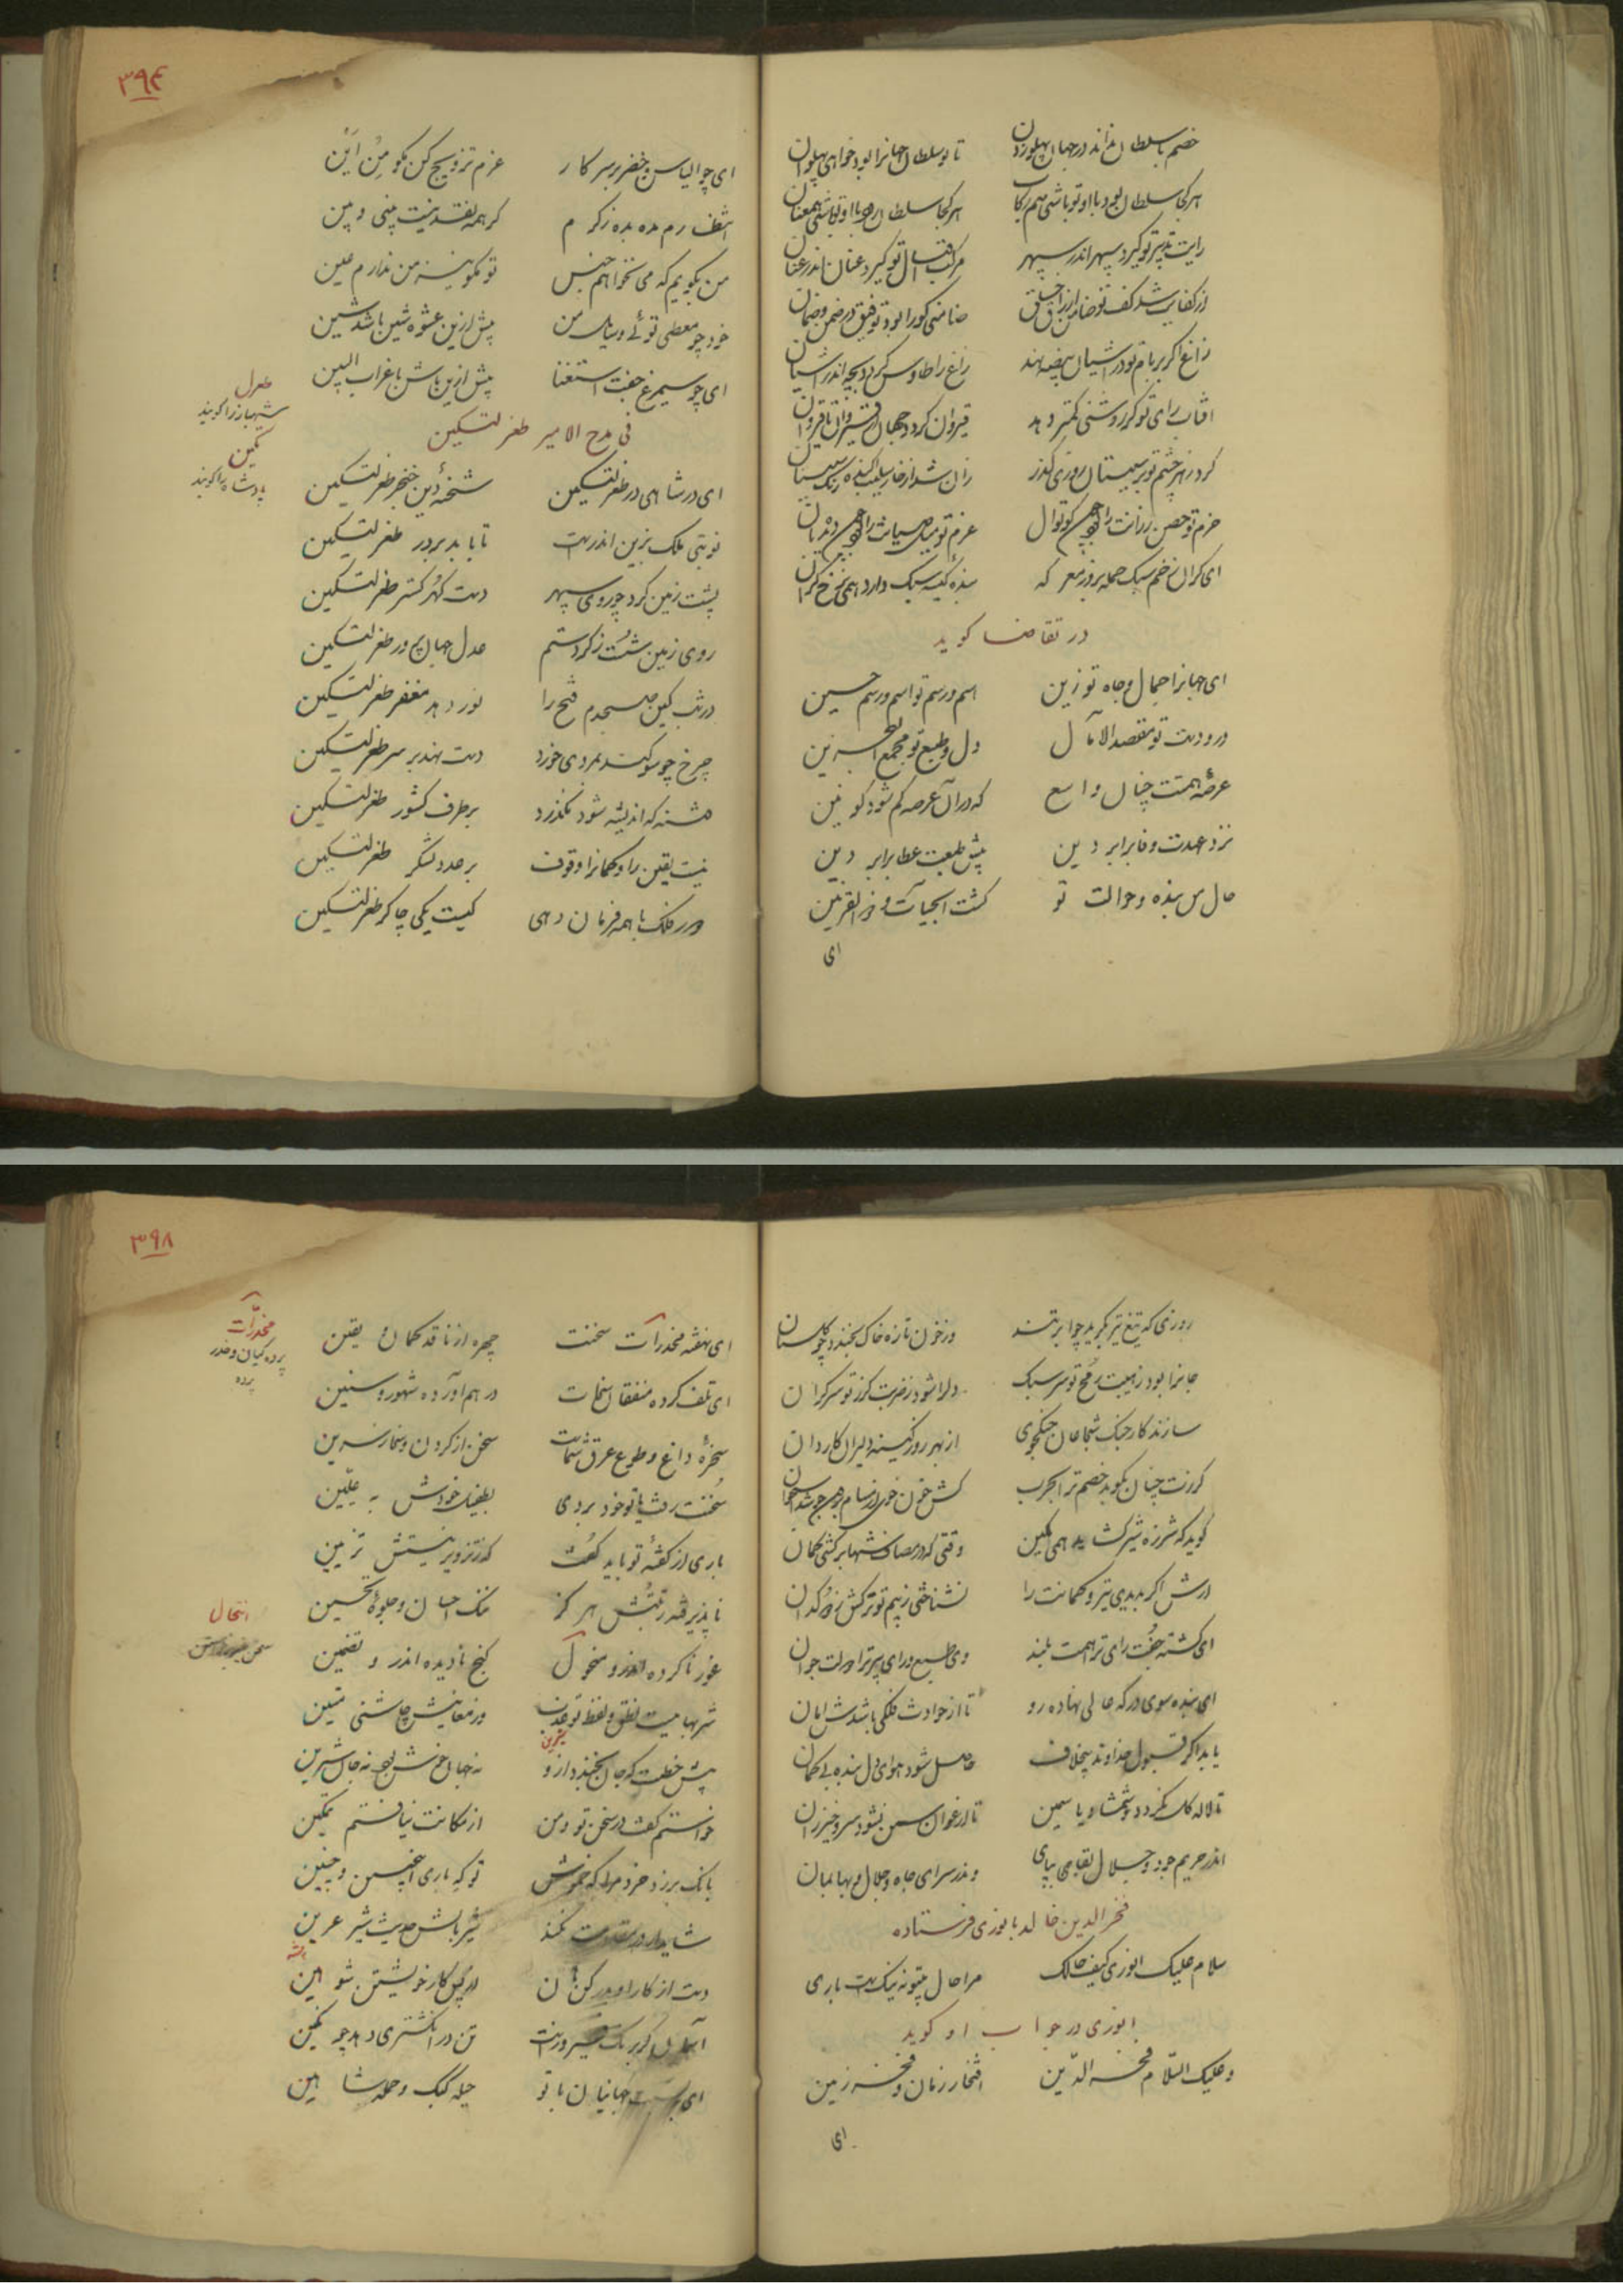 خصم با سلطان نماند در جهان پهلوزدن تا بود سلطان جهانرا بود خواهی پهلوان
هر کجا سلطان بود با او تو باشی هم رکاب هر کجا سلطان رود با او تو باشی هم‌عنان
رایت تدبیر تو گیرد سپهر اندر سپهر مرکب اقبال تو گیرد عنان اندر عنان
از کفایت شد کف تو ضامن ارزاق خلق ضامنی کورا بود توفیق در ضمن و ضمان
زاغ اگر بر بام تو در آشیان بیضه نهد زاغ را طاوس گردد بچه اندر آشیان
آفتاب رای تو گر روشنی کمتر دهد قیروان گردد جهان از قیروان تا قیروان
کرد زهر چشم تو بر سیستان روزی گذر زان شد از خار
حزم تو حصن رزانت را کوتوال عزم تو
ای گران زخم سبک حمله بروز معرکه بنده کیسه سبک دارد همی نرخ گران
در تقاضا گوید
ای جهانرا جمال و جاه تو زین اسم و رسم تو اسم و رسم حسین
در و دست تو مقصد الآمال دل و طبع تو مجمع البحرین
عرصه همتت چنان واسع که در آن عرصه گم شود کونین
نزد عهدت وفا برابر دین پیش طبعت عطا برابر دین
حال من بنده و حوالت تو گشت آب حیات و ذو القرنین
ای
۳۹۴
ای چو الیاس و خضر بر سر کار عزم ترویج کن بگو من این
انتظارم مده بده ز کرم گر همه نقد نیست پنی و پین
من نگویم که می نخواهم جنس تو نگو نیز من ندارم عین
خود چو معطی توئی و سایل من بیش ازین عشوه شین باشد شین
ای چو سیمرغ جفت استغنا بیش ازین باش با غراب البین
فی مدح الامیر طغرلتکین
طغرل
شهباز را گویند
تکین
پادشاه را گویند
ای در شاهی در طغرلتکین شحنه دین خنجر طغرلتکین
نوبتی ملک بزین اندرست تا بابد بر در طغرلتکین
پشت زمین کرد چو روی سپهر دست گهر گستر طغرلتکین
روی زمین شست ز گرد ستم عدل جهان پرور طغرلتکین
در شب کین صبحدم فتح را نور دهد مغفر طغرلتکین
چرخ چو سوگند بمردی خورد دست نهد بر سر طغرلتکین
فتنه که اندیشه شود نگذرد بر طرف کشور طغرلتکین
نیست یقین را و گمانرا وقوف بر عدد لشکر طغرلتکین
ور فلک با همه فرمان دهی کیست یکی چاکر طغرلتکین
روزی که تیغ تیز بگرید چو ابر تند وز خون تازه خاک بخندد چو گلستان
جانرا بود ز هیبت رمح تو سر سبک دلرا شود ز ضربت گرز تو سر گران
سازند کار جنگ شجاعان جنگجوی از بهر روز کینه دلیران کاردان
گرزت چنان بکوبد خصم ترا بحرب کش خون
گوید که شرزه شیر است همی بکین وقتی که در مصاف نشینی بر کشی کمان
آرش اگر بدیدی تیر و کمانت را نشناختی ز بیم تو ترکش ز دوکدان
ای گشته جفت رای ترا همت بلند وی طبع و رای پیر ترا دولت جوان
ای بنده سوی درگه عالی نهاده رو تا از حوادث فلکی باشدش امان
یابد اگر قبول خداوند بیخلاف حاصل شود هوای دل بنده بی گمان
تا لاله گل نگردد و شمشاد یاسمین تا ارغوان سمن نشود سرو خیزران
اندر حریم جود و جلال بقا بپای وندر سرای جاه و جلال و بها بمان
فخر الدین خالد بانوری فرستاده
سلام علیک انوری کیف حالک مرا حال بیتو نه نیکست باری
انوری در جواب او گوید
و علیک السلام فخر الدین افتخار زمان و فخر زمین
ای
۳۹۸
ای نهفته مخدرات سخنت چهره از ناقد گمان و یقین
مخدرات
پرده‌گیان و خدر
پرده
ای تلف کرده منفقان سخات در هم آورده شهور و سنین
سخره داغ و طوع عرق شماست سخن از گردن و سرین
سخنت رشا تو خود بردی بطفیل خودش به علیین
باری از گفته تو باید گفت که ز تزویر نیستش تزیین
ناپذیرفته رتبتش هرگز ننگ احسان و جلوه تحسین
انتحال
غور ناکرده اندر و منحول گنج نادیده اندر و تضمین
شربهاییست نطق و لفظ تو عذب وز معانیش چاشنی متین
شیرین
پیش خطت که جان بخندد ازو نه جهان خوش بود نه جان شیرین
خواستم گفت در سخن تو و من از مکانت نیافتم تمکین
بانگ بر زد خرد مرا که خموش تو که باری این چنین و چنین
شاید ار در نکند شیر بالش حدیث شیر عرین
دست از کار او بدار کنون از پی کار خویشتن شو هین
آسمان گر بر سرورست تن در انگشتری دهد چو نگین
ای جهانیان با تو حیله کبک و حمله شاهین